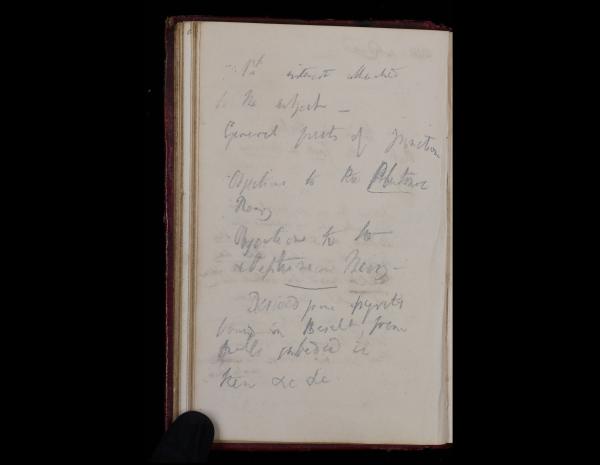 1st interest attached
to the subject —
General facts of junction
Objections to the Plutonic
Theory
Objections to the
Neptunian Theory —
Derived from
being in Basalt, from
shells imbedded in
them &c &c.